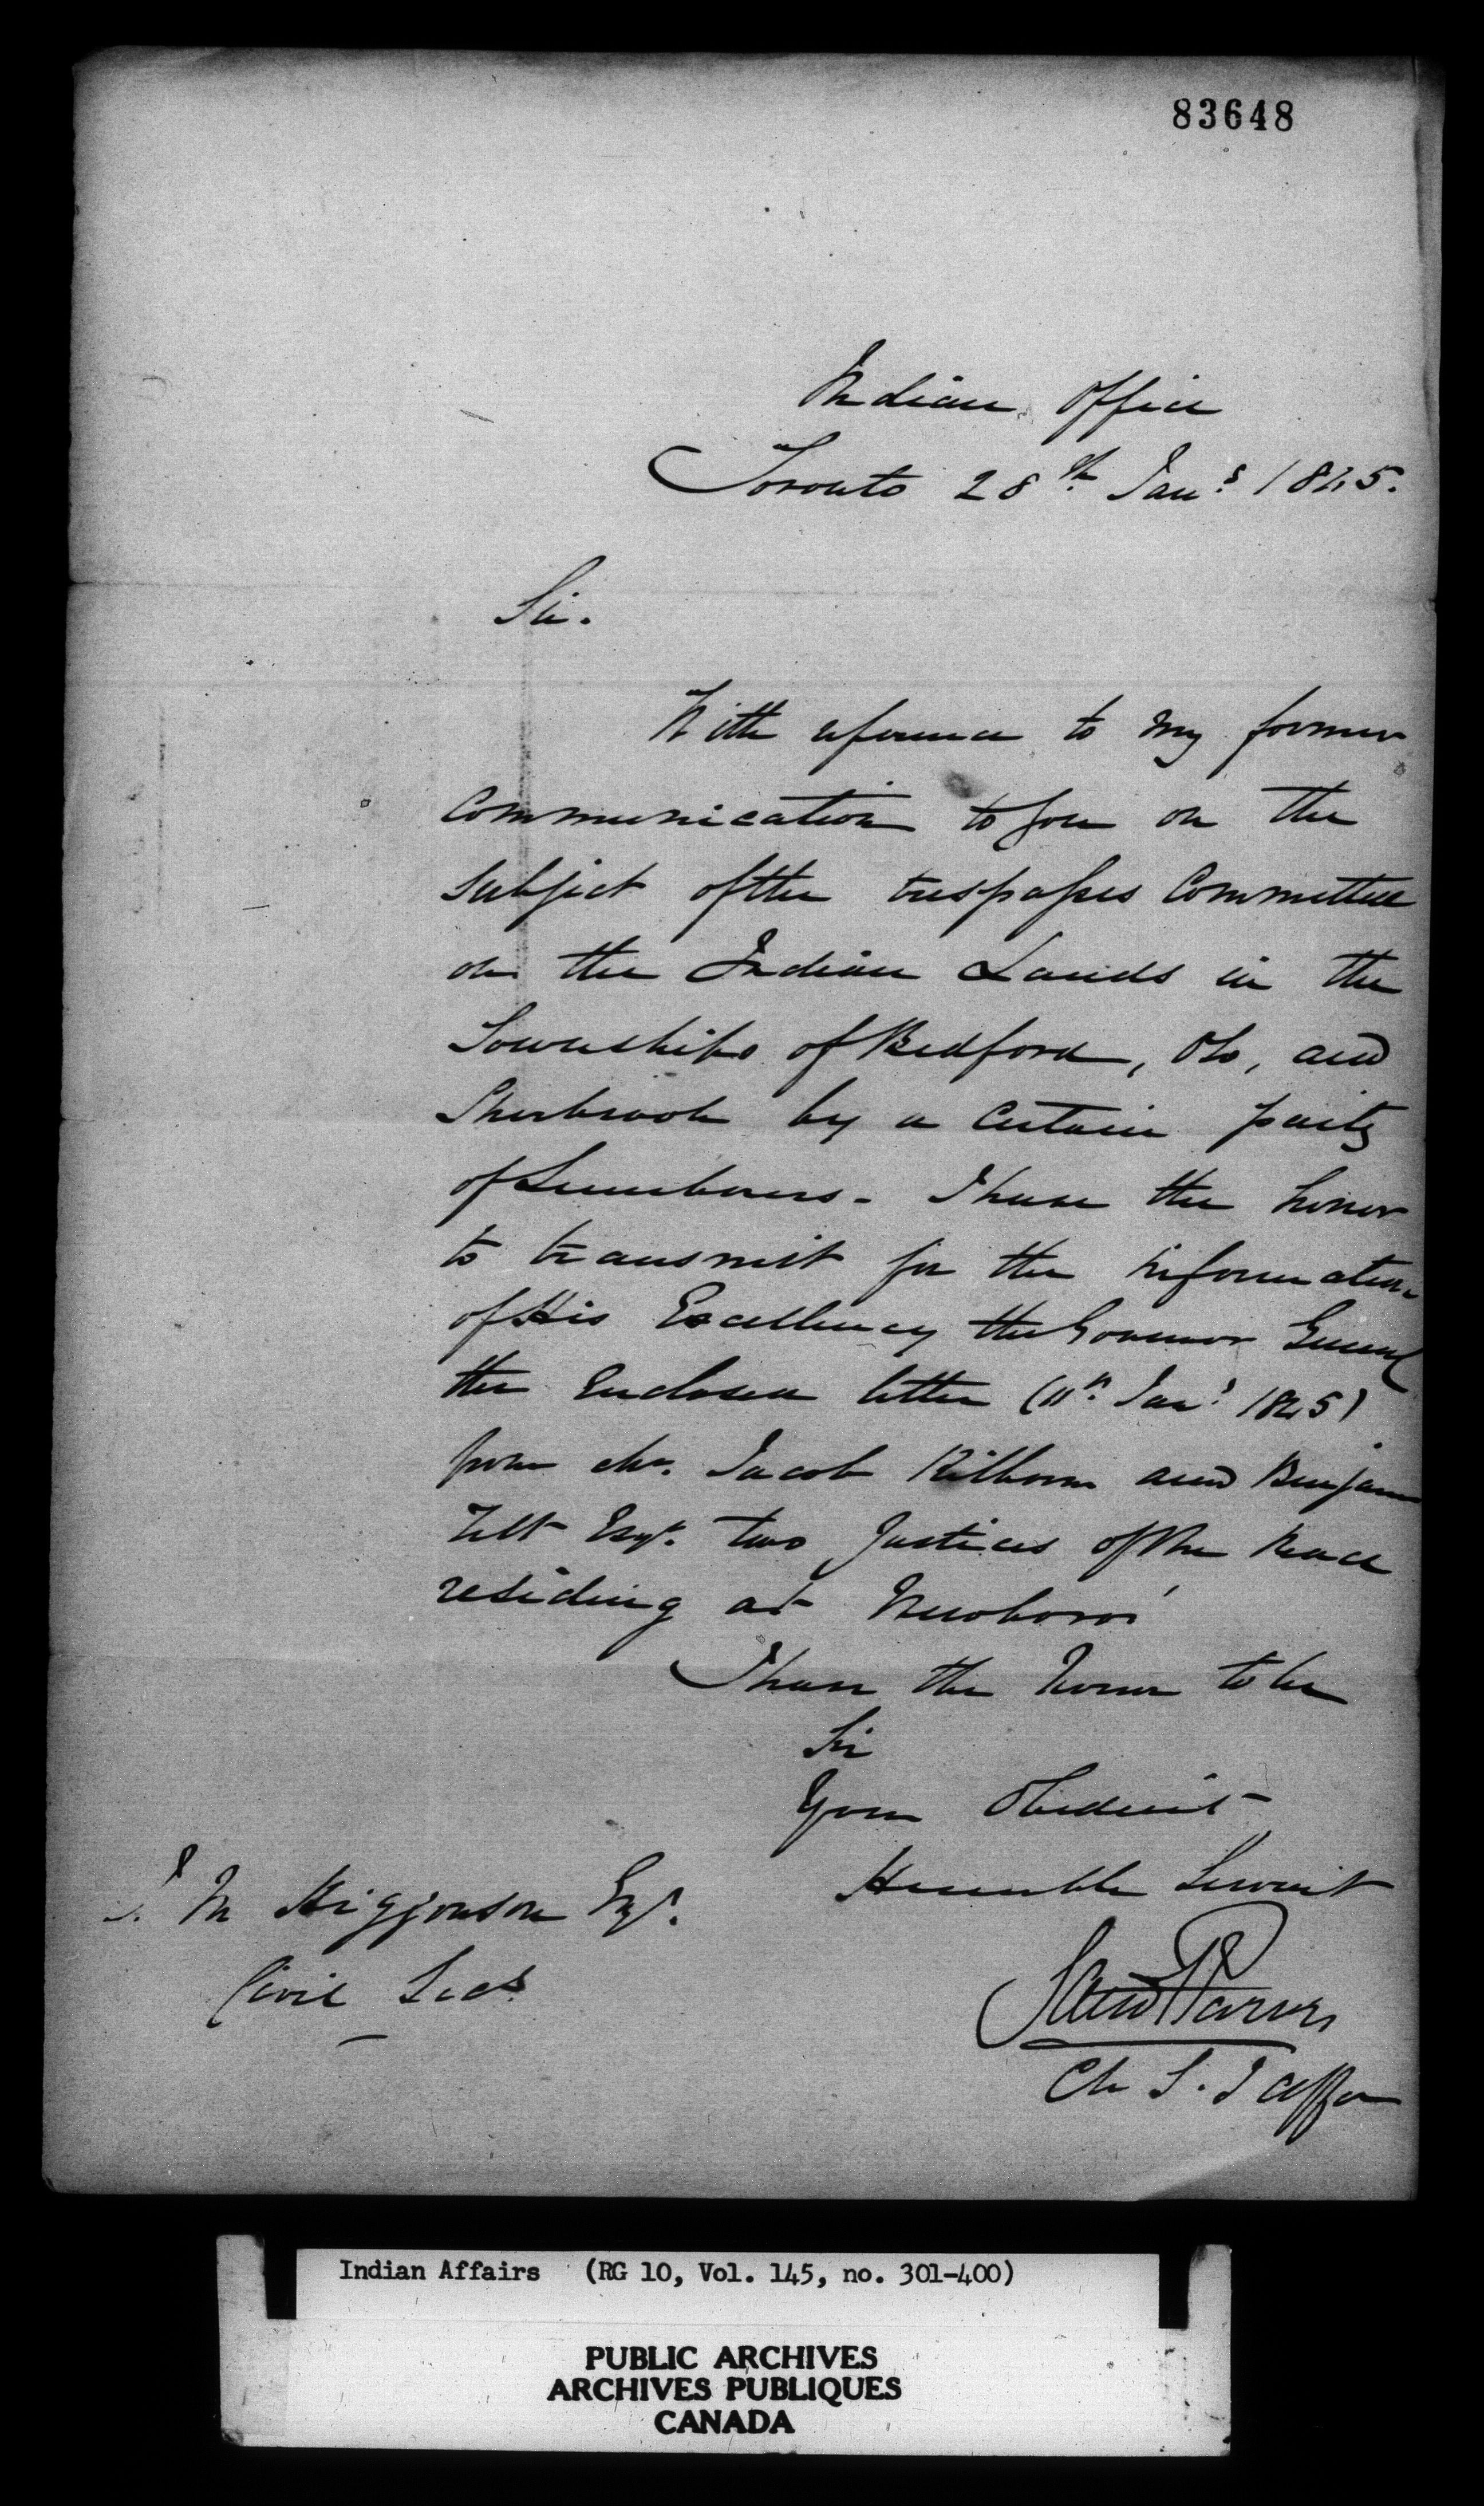 83648
Indian Office
Toronto 28th Jany 1845.
Sir.
With reference to my former
Communication to you on the
Subject of the trespasses Committed
on the Indian Lands in the
Townships of Bedford, Oso, and
Sherbrook by a Certain party
of Lumberers - I have the honor
to transmit for the information
of His Excellency the Governor General
the Enclosed letter (11th Jany 1845)
from Mr. Jacob Kilborn and Benjamin
Tett Esqr. two Justices of the Peace
residing at Newboro'
I have the honor to be
Sir
Your Obedient
Humble Servant
J. M Higginson Esqr.
Civil Secy
Saml P Jarvis
Ch S. I Affr
Indian Affairs (RG 10, Vol. 145, no. 301-400)
PUBLIC ARCHIVES
ARCHIVES PUBLIQUES
CANADA